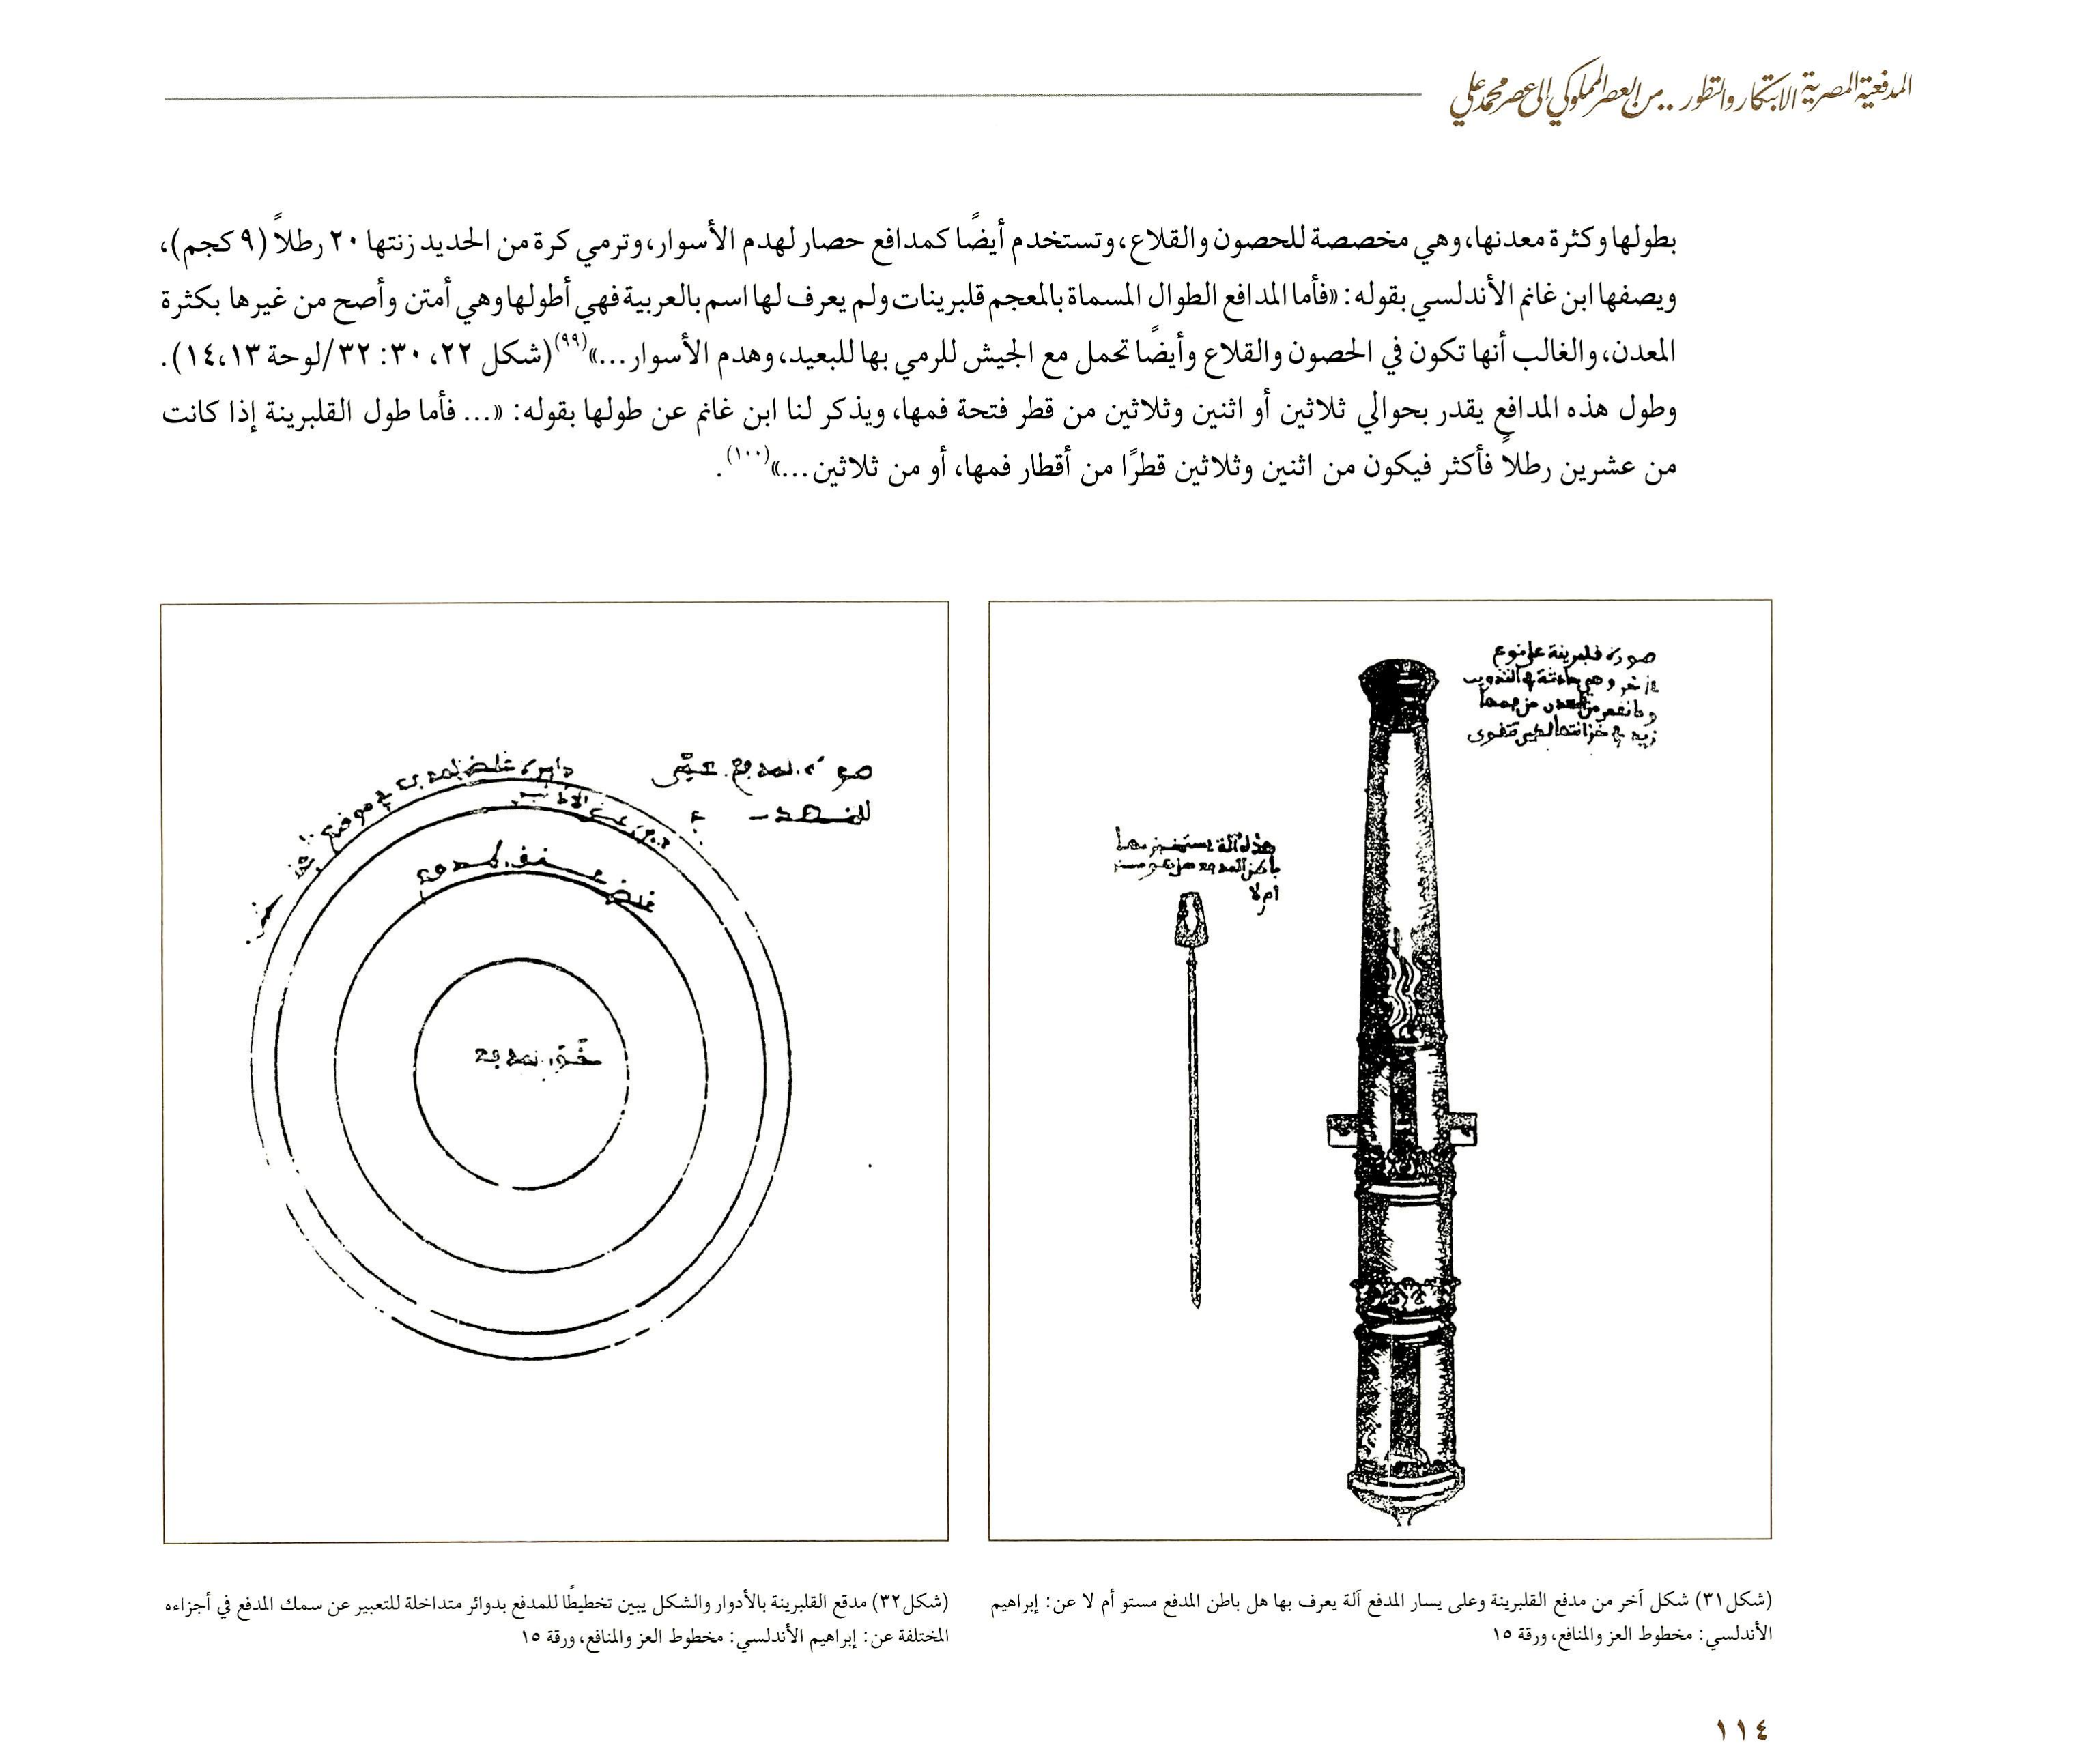 المدفعية المصرية الابتكار والتطور .. من العصر المملوكي إلى عصر محمد علي
بطولها وكثرة معدنها، وهي مخصصة للحصون والقلاع، وتستخدم أيضًا كمدافع حصار لهدم الأسوار، وترمي كرة من الحديد زنتها ٢٠ رطلاً (٩ كجم)،
ويصفها ابن غانم الأندلسي بقوله: «فأما المدافع الطوال المسماة بالمعجم قلبرينات ولم يعرف لها اسم بالعربية فهي أطولها وهي أمتن وأصح من غيرها بكثرة
المعدن، والغالب أنها تكون في الحصون والقلاع وأيضًا تحمل مع الجيش للرمي بها للبعيد، وهدم الأسوار...»(٩٩) (شكل ٢٢، ٣٠: ٣٢/لوحة ١٣، ١٤).
وطول هذه المدافع يقدر بحوالي ثلاثين أو اثنين وثلاثين من قطر فتحة فمها، ويذكر لنا ابن غانم عن طولها بقوله: «... فأما طول القلبرينة إذا كانت
من عشرين رطلاً فأكثر فيكون من اثنين وثلاثين قطرًا من أقطار فمها، أو من ثلاثين...»(١٠٠).
صورة قلبرينة على نوع
هذه آلة يستخبر بها
أم لا
(شكل ٣١) شكل آخر من مدفع القلبرينة وعلى يسار المدفع آلة يعرف بها هل باطن المدفع مستو أم لا عن: إبراهيم
الأندلسي: مخطوط العز والمنافع، ورقة ١٥
(شكل ٣٢) مدقع القلبرينة بالأدوار والشكل يبين تخطيطًا للمدفع بدوائر متداخلة للتعبير عن سمك المدفع في أجزاءه
المختلفة عن: إبراهيم الأندلسي: مخطوط العز والمنافع، ورقة ١٥
١١٤